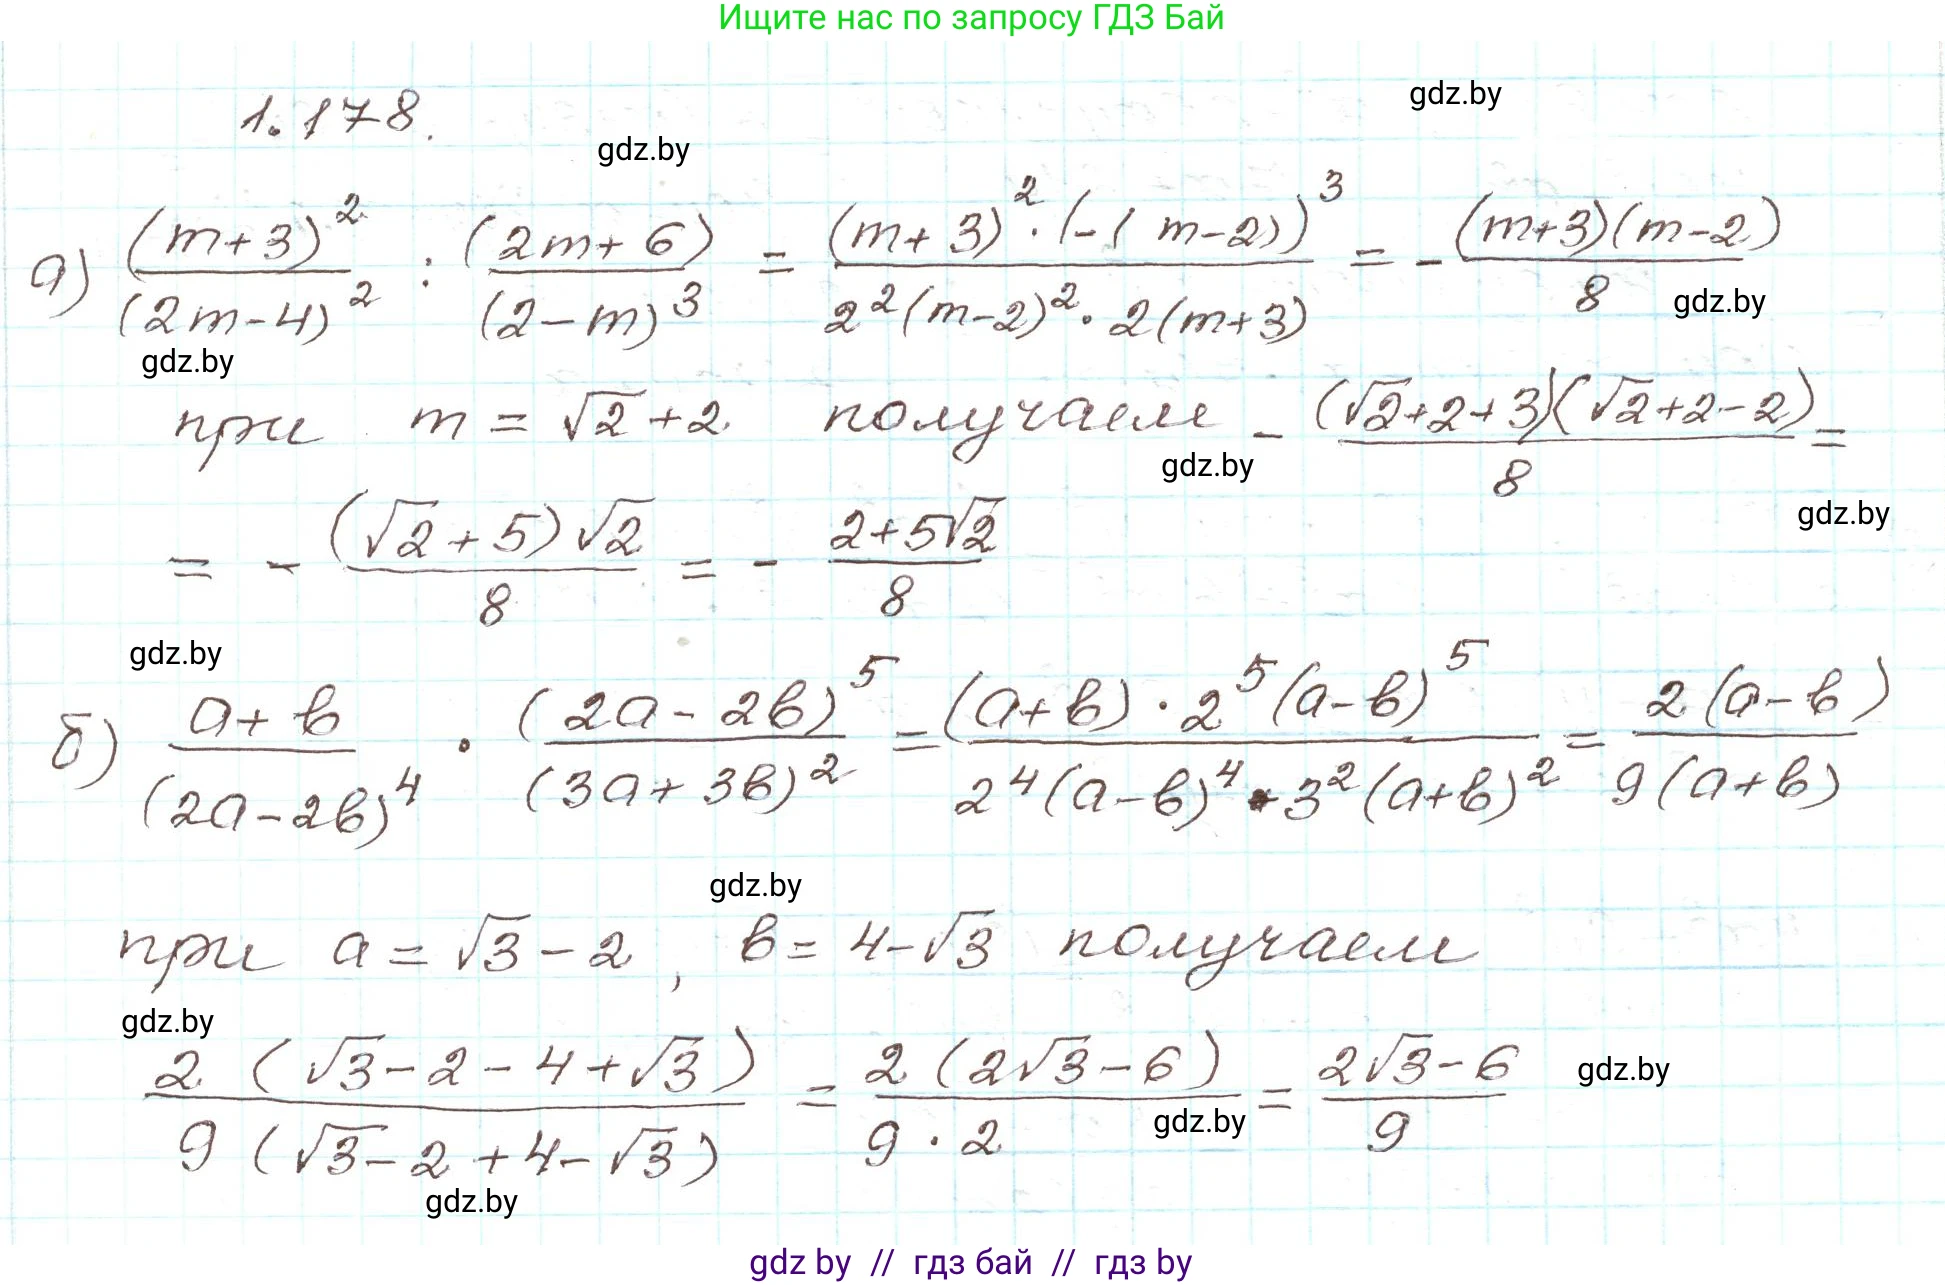 Ищите нас по запросу ГДЗ Бай
gdz.by
1.178.
gdz.by
а) (m+3)² / (2m-4)² : (2m+6) / (2-m)³ = (m+3)² · (-(m-2))³ / 2²(m-2)² · 2(m+3) = - (m+3)(m-2) / 8
gdz.by
gdz.by
при m = √2 + 2 получаем - (√2+2+3)(√2+2-2) / 8 =
gdz.by
gdz.by
= - (√2+5)√2 / 8 = - 2+5√2 / 8
gdz.by
б) a+b / (2a-2b)⁴ · (2a-2b)⁵ / (3a+3b)² = (a+b) · 2⁵(a-b)⁵ / 2⁴(a-b)⁴ · 3²(a+b)² = 2(a-b) / 9(a+b)
gdz.by
при a = √3 - 2, b = 4-√3 получаем
gdz.by
2 (√3-2-4+√3) / 9 (√3-2+4-√3) = 2 (2√3-6) / 9 · 2 = 2√3-6 / 9
gdz.by
gdz.by
gdz.by
gdz by // гдз бай // гдз by